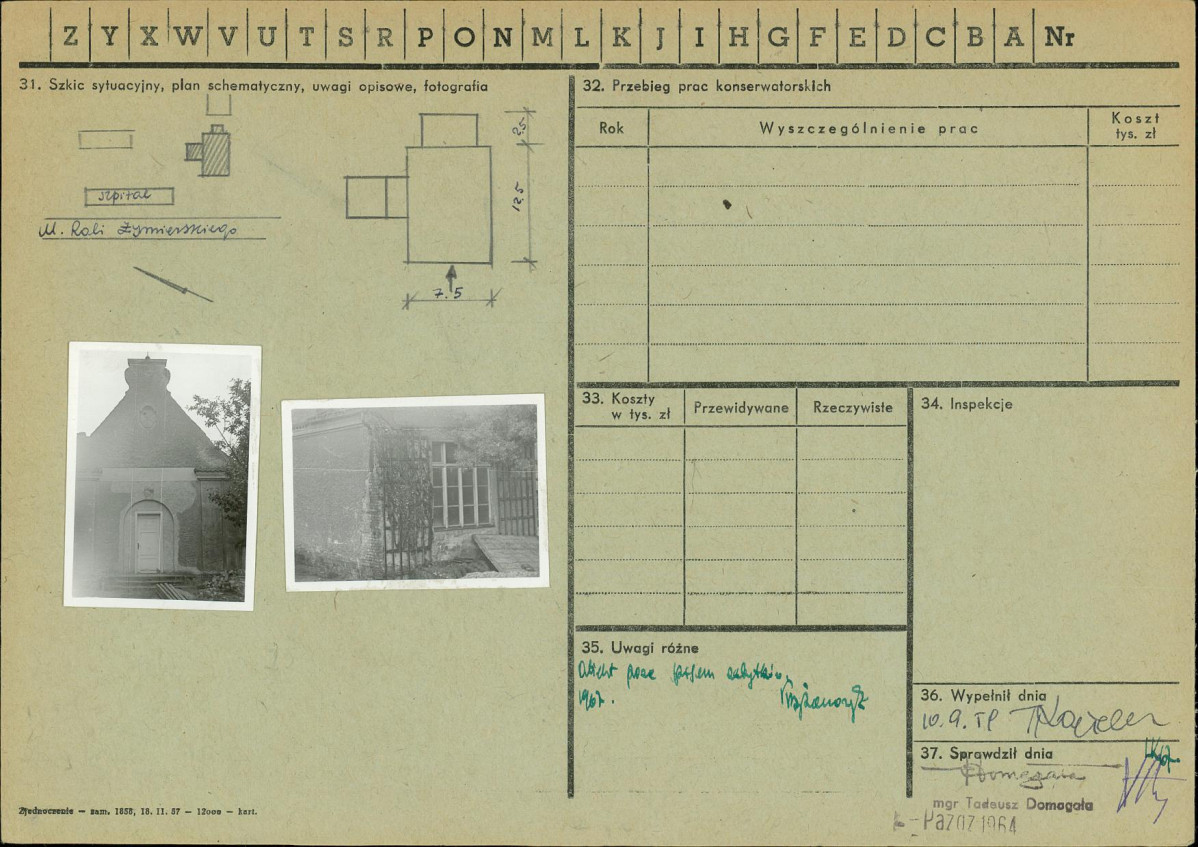 Z Y X W V U T S R P O N M L K J I H G F E D C B A Nr
31. Szkic sytuacyjny, plan schematyczny, uwagi opisowe, fotografia
szpital
M. Roli Żymierskiego
2.5
12.5
7.5
32. Przebieg prac konserwatorskich
Rok
Wyszczególnienie prac
Koszt
tys. zł
33. Koszty
w tys. zł
Przewidywane
Rzeczywiste
34. Inspekcje
35. Uwagi różne
Obiekt poza
1967.
36. Wypełnił dnia
10.9.
37. Sprawdził dnia
mgr Tadeusz Domagała
1964
Zjednoczenie — zam. 1858, 18. 11. 57 — 12000 — kart.